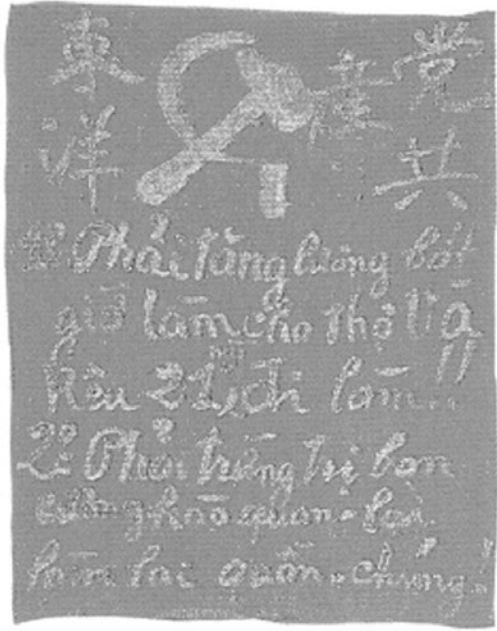 東 産 党
洋 共
1º Phải tăng lương bớt
giờ làm cho thợ và
kêu đi làm..
2º Phải trừng trị bọn
cường hào quan-lại
hãm hại quần-chúng!